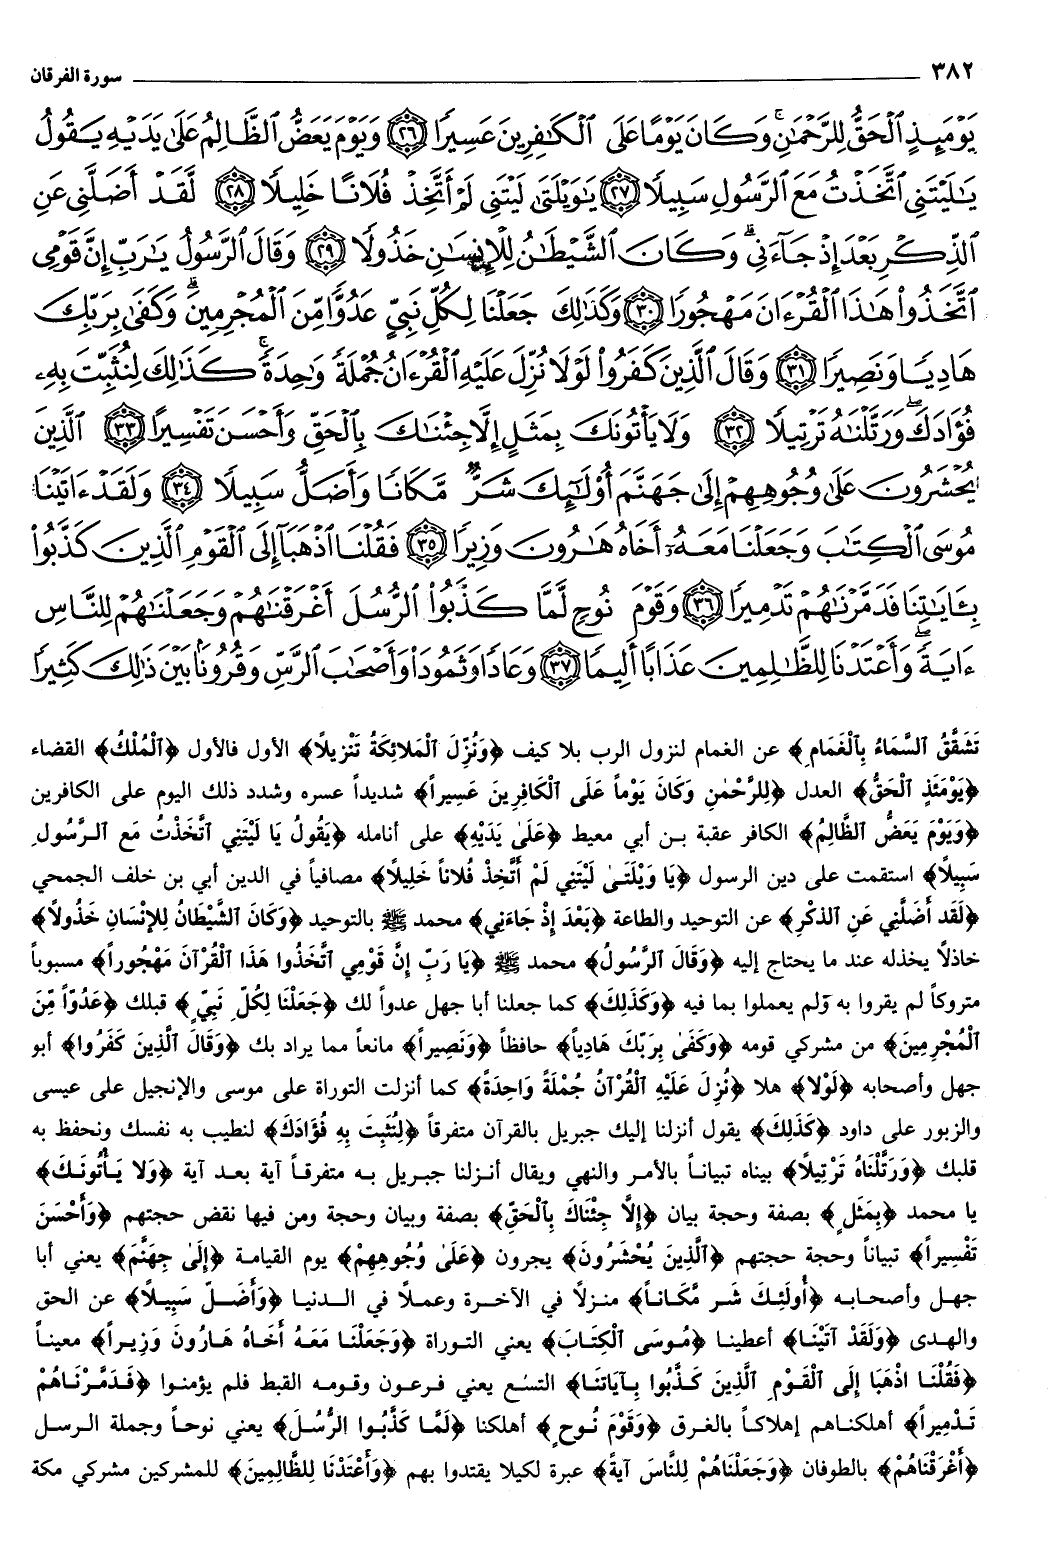 ٣٨٢ سورة الفرقان
يَوْمَئِذٍ ٱلْحَقُّ لِلرَّحْمَٰنِ ۚ وَكَانَ يَوْمًا عَلَى ٱلْكَٰفِرِينَ عَسِيرًا ﴿٢٦﴾ وَيَوْمَ يَعَضُّ ٱلظَّالِمُ عَلَىٰ يَدَيْهِ يَقُولُ
يَٰلَيْتَنِى ٱتَّخَذْتُ مَعَ ٱلرَّسُولِ سَبِيلًا ﴿٢٧﴾ يَٰوَيْلَتَىٰ لَيْتَنِى لَمْ أَتَّخِذْ فُلَانًا خَلِيلًا ﴿٢٨﴾ لَّقَدْ أَضَلَّنِى عَنِ
ٱلذِّكْرِ بَعْدَ إِذْ جَآءَنِى ۗ وَكَانَ ٱلشَّيْطَٰنُ لِلْإِنسَٰنِ خَذُولًا ﴿٢٩﴾ وَقَالَ ٱلرَّسُولُ يَٰرَبِّ إِنَّ قَوْمِى
ٱتَّخَذُوا۟ هَٰذَا ٱلْقُرْءَانَ مَهْجُورًا ﴿٣٠﴾ وَكَذَٰلِكَ جَعَلْنَا لِكُلِّ نَبِىٍّ عَدُوًّا مِّنَ ٱلْمُجْرِمِينَ ۗ وَكَفَىٰ بِرَبِّكَ
هَادِيًا وَنَصِيرًا ﴿٣١﴾ وَقَالَ ٱلَّذِينَ كَفَرُوا۟ لَوْلَا نُزِّلَ عَلَيْهِ ٱلْقُرْءَانُ جُمْلَةً وَٰحِدَةً ۚ كَذَٰلِكَ لِنُثَبِّتَ بِهِۦ
فُؤَادَكَ ۖ وَرَتَّلْنَٰهُ تَرْتِيلًا ﴿٣٢﴾ وَلَا يَأْتُونَكَ بِمَثَلٍ إِلَّا جِئْنَٰكَ بِٱلْحَقِّ وَأَحْسَنَ تَفْسِيرًا ﴿٣٣﴾ ٱلَّذِينَ
يُحْشَرُونَ عَلَىٰ وُجُوهِهِمْ إِلَىٰ جَهَنَّمَ أُو۟لَٰٓئِكَ شَرٌّ مَّكَانًا وَأَضَلُّ سَبِيلًا ﴿٣٤﴾ وَلَقَدْ ءَاتَيْنَا
مُوسَى ٱلْكِتَٰبَ وَجَعَلْنَا مَعَهُۥٓ أَخَاهُ هَٰرُونَ وَزِيرًا ﴿٣٥﴾ فَقُلْنَا ٱذْهَبَآ إِلَى ٱلْقَوْمِ ٱلَّذِينَ كَذَّبُوا۟
بِـَٔايَٰتِنَا فَدَمَّرْنَٰهُمْ تَدْمِيرًا ﴿٣٦﴾ وَقَوْمَ نُوحٍ لَّمَّا كَذَّبُوا۟ ٱلرُّسُلَ أَغْرَقْنَٰهُمْ وَجَعَلْنَٰهُمْ لِلنَّاسِ
ءَايَةً ۖ وَأَعْتَدْنَا لِلظَّٰلِمِينَ عَذَابًا أَلِيمًا ﴿٣٧﴾ وَعَادًا وَثَمُودَا۟ وَأَصْحَٰبَ ٱلرَّسِّ وَقُرُونًۢا بَيْنَ ذَٰلِكَ كَثِيرًا
تَشَقَّقُ ٱلسَّمَاءُ بِٱلْغَمَامِ﴾ عن الغمام لنزول الرب بلا كيف ﴿وَنُزِّلَ ٱلْمَلائِكَةُ تَنْزِيلاً﴾ الأول فالأول ﴿ٱلْمُلْكُ﴾ القضاء
﴿يَوْمَئذٍ ٱلْحَقُّ﴾ العدل ﴿لِلرَّحْمٰنِ وَكَانَ يَوْماً عَلَى ٱلْكَافِرِينَ عَسِيراً﴾ شديداً عسره وشدد ذلك اليوم على الكافرين
﴿وَيَوْمَ يَعَضُّ ٱلظَّالِمُ﴾ الكافر عقبة بن أبي معيط ﴿عَلَىٰ يَدَيْهِ﴾ على أنامله ﴿يَقُولُ يَا لَيْتَنِي ٱتَّخَذْتُ مَعَ ٱلرَّسُولِ
سَبِيلاً﴾ استقمت على دين الرسول ﴿يَا وَيْلَتَىٰ لَيْتَنِي لَمْ أَتَّخِذْ فُلاناً خَلِيلاً﴾ مصافياً في الدين أبي بن خلف الجمحي
﴿لَقَد أَضَلَّنِي عَنِ ٱلذكْرِ﴾ عن التوحيد والطاعة ﴿بَعْدَ إِذْ جَاءَنِي﴾ محمد ﷺ بالتوحيد ﴿وَكَانَ ٱلشَّيْطَانُ لِلإِنْسَانِ خَذُولاً﴾
خاذلاً يخذله عند ما يحتاج إليه ﴿وَقَالَ ٱلرَّسُولُ﴾ محمد ﷺ ﴿يَا رَبِّ إِنَّ قَوْمِي ٱتَّخَذُوا هَذَا ٱلْقُرْآنَ مَهْجُوراً﴾ مسبوباً
متروكاً لم يقروا به ولم يعملوا بما فيه ﴿وَكَذَلِكَ﴾ كما جعلنا أبا جهل عدواً لك ﴿جَعَلْنَا لِكُلِّ نَبِيٍّ﴾ قبلك ﴿عَدُوّاً مِّنَ
ٱلْمُجْرِمِينَ﴾ من مشركي قومه ﴿وَكَفَىٰ بِرَبِّكَ هَادِياً﴾ حافظاً ﴿وَنَصِيراً﴾ مانعاً مما يراد بك ﴿وَقَالَ ٱلَّذِينَ كَفَرُوا﴾ أبو
جهل وأصحابه ﴿لَوْلا﴾ هلا ﴿نُزِلَ عَلَيْهِ ٱلْقُرْآنُ جُمْلَةً وَاحِدَةً﴾ كما أنزلت التوراة على موسى والإنجيل على عيسى
والزبور على داود ﴿كَذَلِكَ﴾ يقول أنزلنا إليك جبريل بالقرآن متفرقاً ﴿لِنُثَبِتَ بِهِ فُؤَادَكَ﴾ لنطيب به نفسك ونحفظ به
قلبك ﴿وَرَتَّلْنَاهُ تَرْتِيلاً﴾ بيناه تبياناً بالأمر والنهي ويقال أنزلنا جبريل به متفرقاً آية بعد آية ﴿وَلا يَأْتُونَكَ﴾
يا محمد ﴿بِمَثَلٍ﴾ بصفة وحجة بيان ﴿إِلَّا جِئْنَاكَ بِٱلْحَقِّ﴾ بصفة وبيان وحجة ومن فيها نقض حجتهم ﴿وَأَحْسَنَ
تَفْسِيراً﴾ تبياناً وحجة حجتهم ﴿ٱلَّذِينَ يُحْشَرُونَ﴾ يجرون ﴿عَلَىٰ وُجُوهِهِمْ﴾ يوم القيامة ﴿إِلَىٰ جِهَنَّمَ﴾ يعني أبا
جهل وأصحابه ﴿أُولَئِكَ شَر مَّكَاناً﴾ منزلاً في الآخرة وعملاً في الدنيا ﴿وَأَضَلّ سَبِيلاً﴾ عن الحق
والهدى ﴿وَلَقَدْ آتَيْنَا﴾ أعطينا ﴿مُوسَى ٱلْكِتَابَ﴾ يعني التوراة ﴿وَجَعَلْنَا مَعَهُ أَخَاهُ هَارُونَ وَزِيراً﴾ معيناً
﴿فَقُلْنَا اذْهَبَا إِلَى ٱلْقَوْمِ ٱلَّذِينَ كَذَّبُوا بِآيَاتنَا﴾ التسع يعني فرعون وقومه القبط فلم يؤمنوا ﴿فَدَمَّرْنَاهُمْ
تَدْمِيراً﴾ أهلكناهم إهلاكاً بالغرق ﴿وَقَوْمَ نُوحٍ﴾ أهلكنا ﴿لَمَّا كَذَّبُوا الرُّسُلَ﴾ يعني نوحاً وجملة الرسل
﴿أَغْرَقْنَاهُمْ﴾ بالطوفان ﴿وَجَعَلْنَاهُمْ لِلنَّاسَ آيةً﴾ عبرة لكيلا يقتدوا بهم ﴿وَأَعْتَدْنَا لِلظَّالِمِينَ﴾ للمشركين مشركي مكة